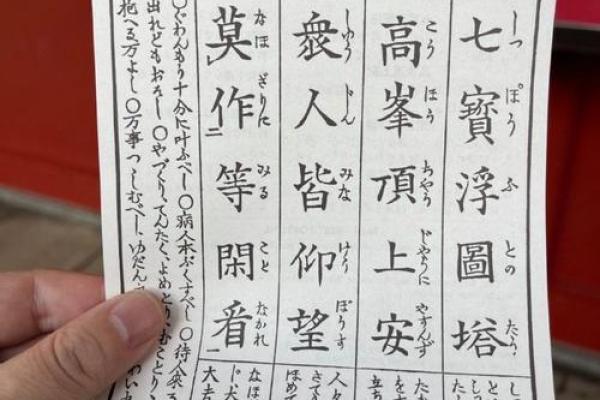 七寶浮圖塔
しつぽうふとのたふ
高峯頂上安
こうほうちやうじやうにやすんず
衆人皆仰望
しゆうじんみなけうぼうす
莫作等閑看
なほざりにみることなかれ
○ぐわんもう十分に叶ふべし ○病人本ぷくすべし ○待人来る
出れどもおそし ○やづくり、てんたく、よめとり、むことり、
抱へる万よし ○万事つゝしむべし、ゆだん